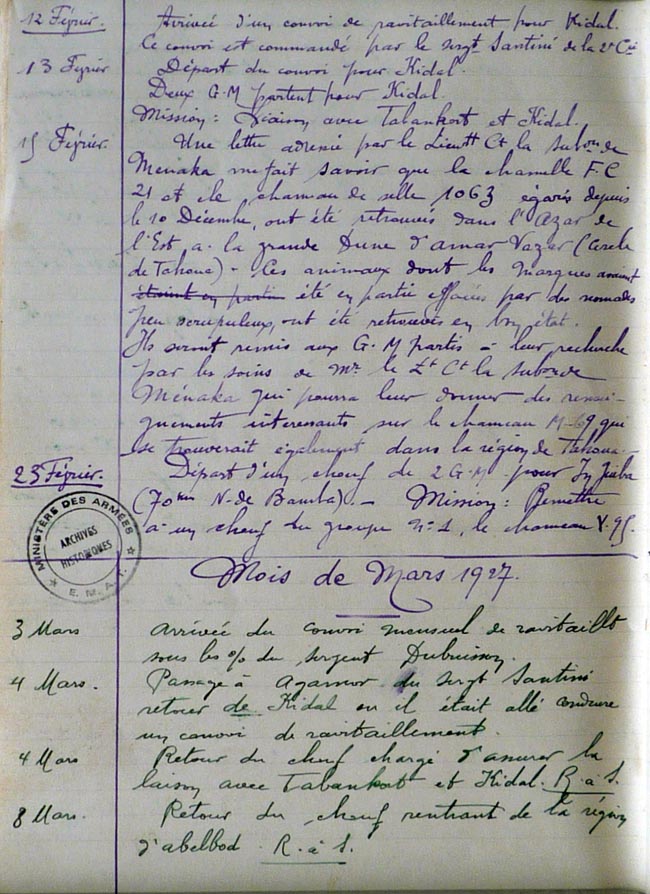 12 Février. Arrivée d'un convoi de ravitaillement pour Kidal.
Ce convoi est commandé par le sergt Santini de la 2e Cie
13 Février Départ du convoi pour Kidal.
Deux G.M partent pour Kidal
Mission: Liaison avec Tabankort et Kidal.
15 Février. Une lettre adressée par le Lieutt Ct la Subon de
Ménaka me fait savoir que la chamelle F.C
21 et le chameau de selle 1063 égarés depuis
le 10 Décembre, ont été retrouvés dans l'Azar de
l'Est, à la grande Dune d'amar Vazar (Cercle
de Tahoua) - Ces animaux dont les marques avaient
étaient en partie été en partie effacées par des nomades
peu scrupuleux, ont été retrouvés en bon état.
Ils seront remis aux G.M partis à leur recherche
par les soins de Mr le Lt Ct la Subon de
Ménaka qui pourra leur donner des rensei-
gnements intéressants sur le chameau M-69 qui
se trouverait également dans la région de Tahoua.
23 Février. Départ d'un chouf de 2 G.M. pour
(70 km N. de Bamba). - Mission: Remettre
à un chouf du groupe N° 1, le chameau Y.95.
MINISTÈRE DES ARMÉES
ARCHIVES
HISTORIQUES
E.M.A.T.
Mois de Mars 1927.
3 Mars Arrivée du convoi mensuel de ravitaillt
sous les o/ du sergent Dubuisson.
4 Mars. Passage à Agamor du sergt Santini
retour de Kidal où il était allé conduire
un convoi de ravitaillement.
4 Mars Retour du chouf chargé d'assurer la
liaison avec Tabankort et Kidal. R.à S.
8 Mars. Retour du chouf rentrant de la région
d'abelbod. R.à S.